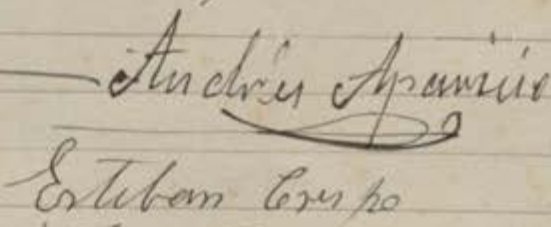 Andrés Aparicio
Esteban Crespo